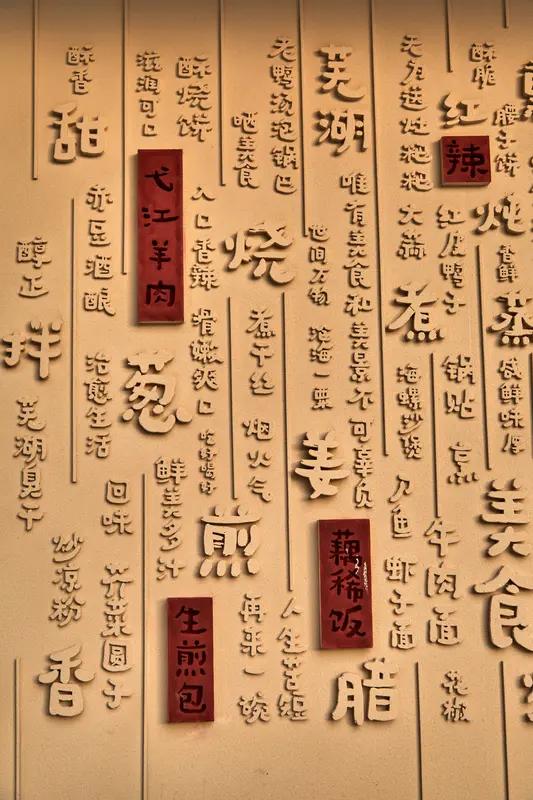 酥香
甜
醇正
拌
芜湖臭干
赤豆酒酿
治愈生活
炒凉粉
香
滋润可口
弋江羊肉
葱
回味
荠菜圆子
酥烧饼
入口香辣
滑嫩爽口
吃好喝好
鲜美多汁
煎
生煎包
晒美食
烧
煮干丝
烟火气
再来一碗
老鸭汤泡锅巴
世间万物
沧海一粟
姜
人生苦短
芜湖
唯有美食和美景不可辜负
藕稀饭
腊
无为送灶粑粑
大蒜
煮
海螺炒煲
刀鱼
虾子面
酥脆
红
辣
红皮鸭子
锅贴
烹
牛肉面
花椒
腰子饼
炖
香鲜
蒸
咸鲜味厚
美食